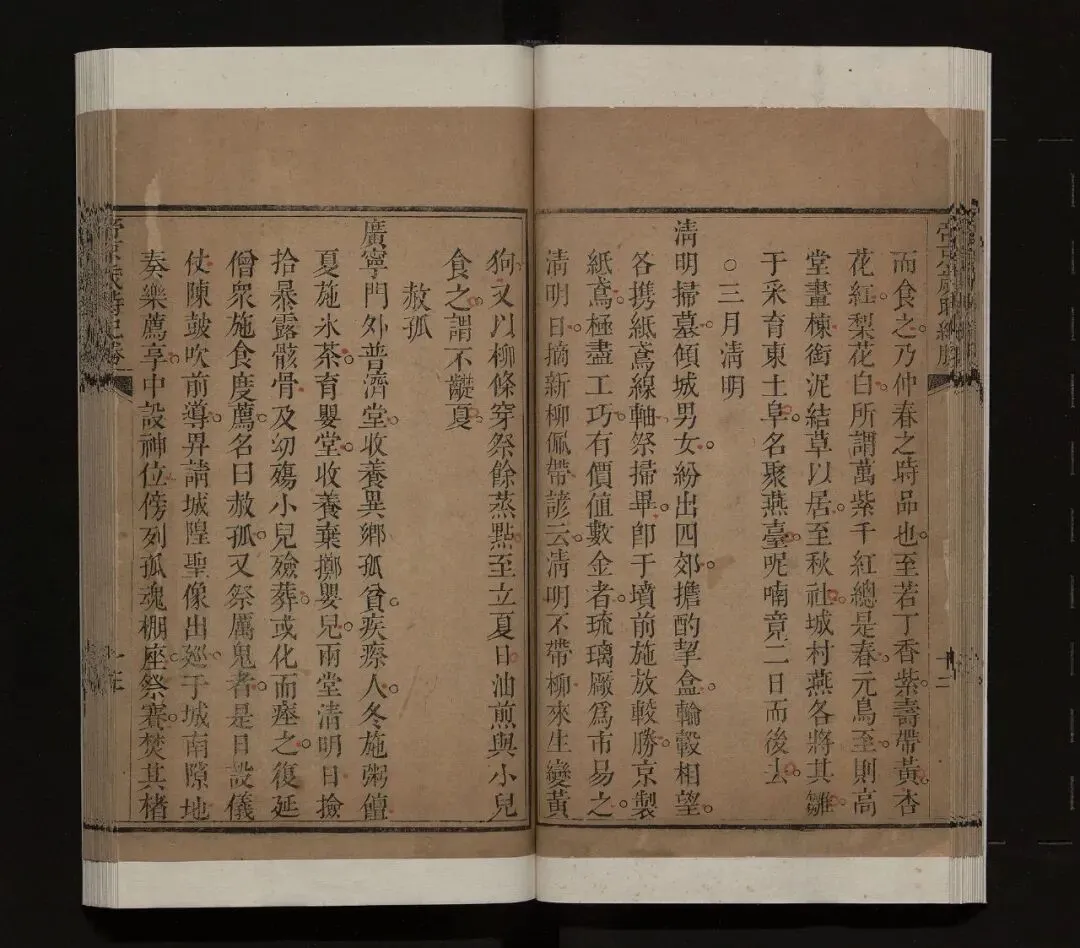 而食之乃仲春之時品也至若丁香紫壽帶黃杏
花紅梨花白所謂萬紫千紅總是春元鳥至則高
堂畫棟銜泥結草以居至秋社城村燕各將其雛
于采育東土阜名聚燕臺呢喃竟二日而後去
○三月淸明
淸明掃墓傾城男女紛出四郊擔酌挈盒輪轂相望
各携紙鳶線軸祭掃畢卽于墳前施放較勝京製
紙鳶極盡工巧有價值數金者琉璃厰爲市易之
淸明日摘新柳佩帶諺云淸明不帶柳來生變黃
狗又以柳條穿祭餘蒸點至立夏日油煎與小兒
食之謂不齼夏
赦孤
廣寧門外普濟堂收養異鄉孤貧疾瘵人冬施粥饘
夏施氷茶育嬰堂收養棄擲嬰兒兩堂淸明日撿
拾暴露骸骨及幼殤小兒殮葬或化而瘞之復延
僧衆施食度薦名曰赦孤又祭厲鬼者是日設儀
仗陳鼓吹前導舁請城隍聖像出廵于城南隙地
奏樂薦享中設神位傍列孤魂棚座祭賽焚其楮